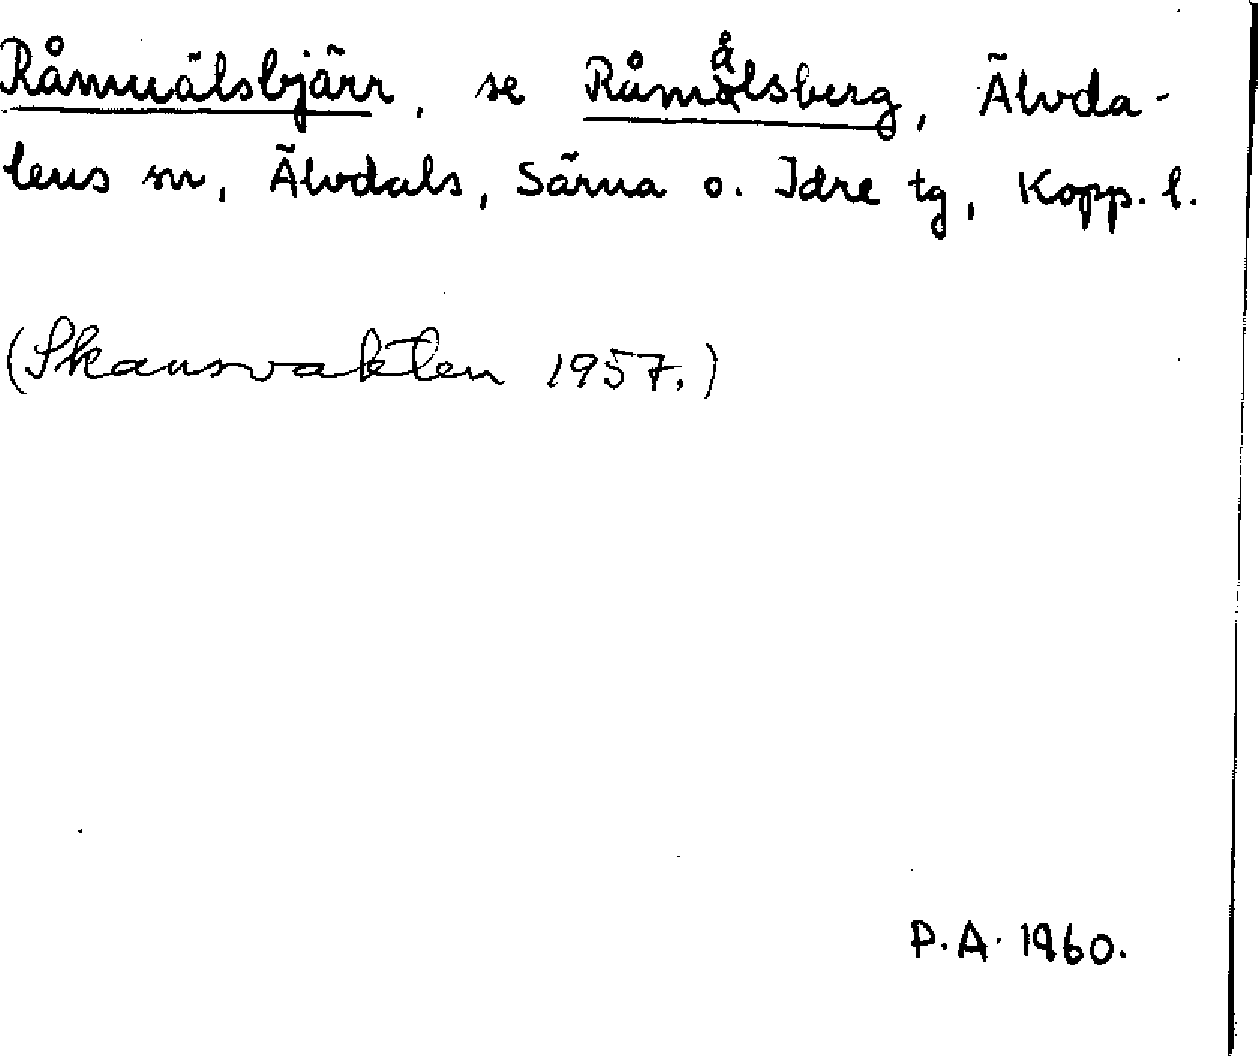 Råmuälsbjärr, se Råmålsberg, Älvda-
lens sn, Älvdals, Särna o. Idre tg, Kopp. l.
(Skansvakten 1957.)
P.A. 1960.